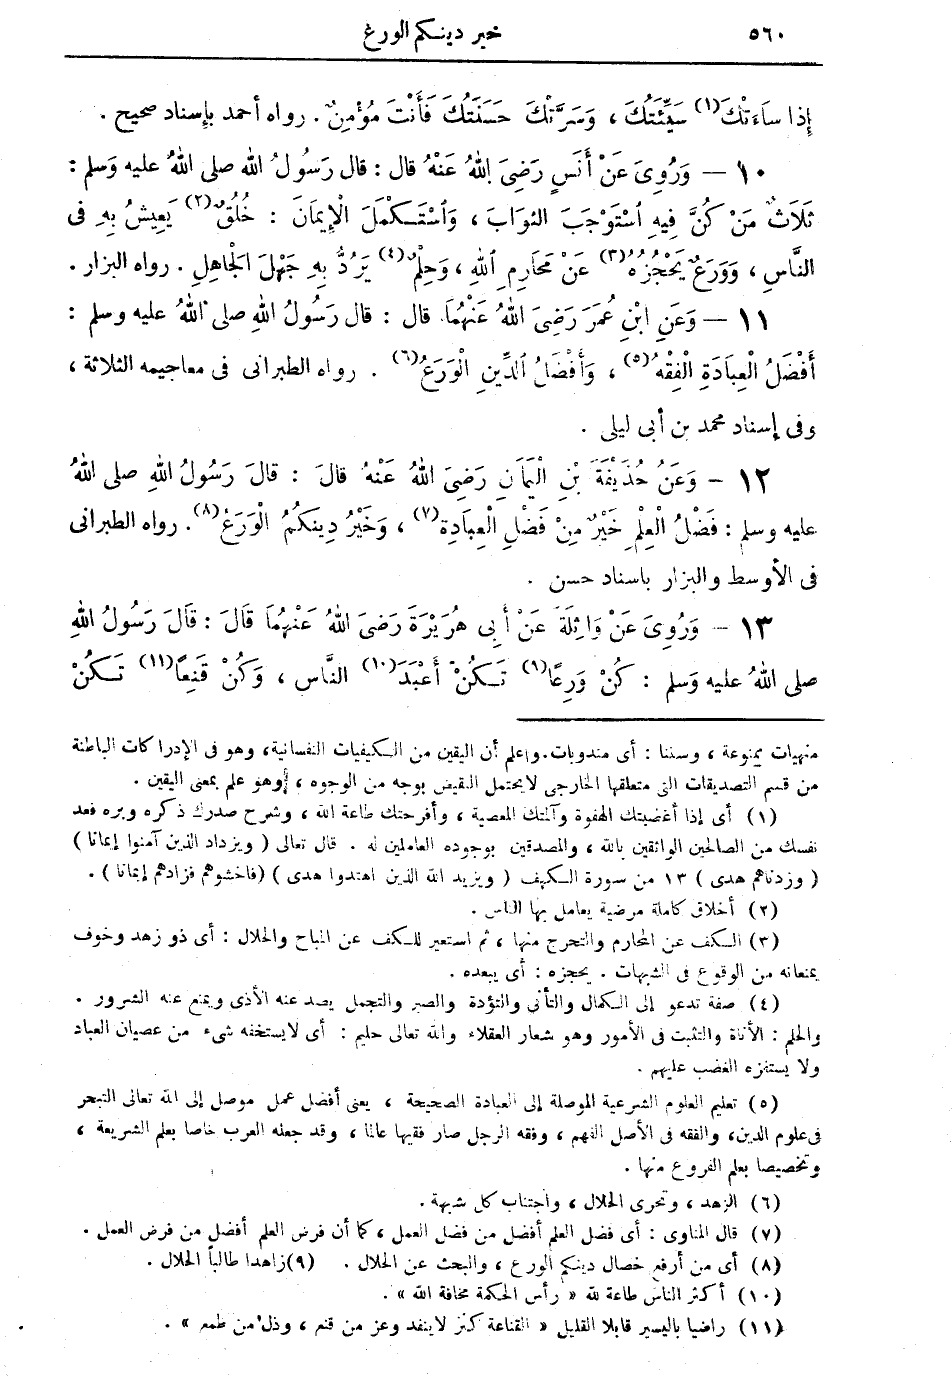 ٥٦٠ خير دينكم الورع
إِذَا سَاءَتْكَ(١) سَيِّئَتُكَ ، وَسَرَّتْكَ حَسَنَتُكَ فَأَنْتَ مُؤْمِنٌ . رواه أحمد بإسناد صحيح .
١٠ — وَرُوِىَ عَنْ أَنَسٍ رَضِىَ اللهُ عَنْهُ قال : قال رَسُولُ الله صلى اللهُ عليه وَسلم :
ثَلَاثٌ مَنْ كُنَّ فِيهِ اسْتَوْجَبَ الثوَابَ ، وَاسْتَكْمَلَ الْإِيمَانَ : خُلُقٌ(٢) يَعِيشُ بِهِ فى
النَّاسِ ، وَوَرَعٌ يَحْجُزُهُ(٣) عَنْ مَحَارِمِ اللهِ ، وَحِلْمٌ(٤) يَرُدُّ بِهِ جَهْلَ الْجَاهِلِ . رواه البزار .
١١ — وَعَنِ ابْنِ عُمَرَ رَضِىَ اللهُ عَنْهُمَا قال : قال رَسُولُ اللهِ صلى اللهُ عليه وسلم :
أَفْضَلُ الْعِبَادَةِ الْفِقْهُ(٥) ، وَأَفْضَلُ الدِّينِ الْوَرَعُ(٦) . رواه الطبرانى فى معاجيمه الثلاثة ،
وفى إسناد محمد بن أبى ليلى .
١٢ — وَعَنْ حُذَيْفَةَ بْنِ الْيَمَانِ رَضِىَ اللهُ عَنْهُ قالَ : قالَ رَسُولُ اللهِ صلى اللهُ
عليه وسلم : فَضْلُ الْعِلْمِ خَيْرٌ مِنْ فَضْلِ الْعِبَادَةِ(٧) ، وَخَيْرُ دِينِكُمُ الْوَرَعُ(٨) . رواه الطبرانى
فى الأوسط والبزار باسناد حسن .
١٣ — وَرُوِىَ عَنْ وَاثِلَةَ عَنْ أَبِى هُرَيْرَةَ رَضِىَ اللهُ عَنْهُمَا قَالَ : قَالَ رَسُولُ اللهِ
صلى اللهُ عليه وَسلم : كُنْ وَرِعًا(٩) تَكُنْ أَعْبَدَ(١٠) النَّاسِ ، وَكُنْ قَنِعاً(١١) تَكُنْ
منهيات ممنوعة ، وسننا : أى مندوبات . واعلم أن اليقين من الكيفيات النفسانية ، وهو فى الإدراكات الباطنة
من قسم التصديقات التى متعلقها الخارجى لايحتمل النقيض بوجه من الوجوه ، وهو علم بمعنى اليقين .
(١) أى إذا أغضبتك الهفوة وآلمتك المعصية ، وأفرحتك طاعة الله ، وشرح صدرك ذكره وبره فعد
نفسك من الصالحين الواثقين بالله ، والمصدقين بوجوده العاملين له . قال تعالى ( ويزداد الذين آمنوا إيمانا )
( وزدناهم هدى ) ١٣ من سورة الكهف ( ويزيد الله الذين اهتدوا هدى ) (فاخشوهم فزادهم إيمانا ) .
(٢) أخلاق كاملة مرضية يعامل بها الناس .
(٣) الكف عن المحارم والتحرج منها ، ثم استعير للكف عن المباح والحلال : أى ذو زهد وخوف
يمنعانه من الوقوع فى الشبهات . يحجزه : أى يبعده .
(٤) صفة تدعو إلى الكمال والتأنى والتؤدة والصبر والتجمل يصد عنه الأذى ويمنع عنه الشرور .
والحلم : الأناة والتثبت فى الأمور وهو شعار العقلاء والله تعالى حليم : أى لايستخفه شىء من عصيان العباد
ولا يستفزه الغضب عليهم .
(٥) تعليم العلوم الشرعية الموصلة إلى العبادة الصحيحة ، يعنى أفضل عمل موصل إلى الله تعالى التبحر
فى علوم الدين ، والفقه فى الأصل الفهم ، وفقه الرجل صار فقيها عالما ، وقد جعله العرب خاصا بعلم الشريعة ،
وتخصيصا بعلم الفروع منها .
(٦) الزهد ، وتحرى الحلال ، واجتناب كل شبهة .
(٧) قال المناوى : أى فضل العلم أفضل من فضل العمل ، كما أن فرض العلم أفضل من فرض العمل .
(٨) أى من أرفع خصال دينكم الورع ، والبحث عن الحلال . (٩) زاهدا طالباً الحلال .
(١٠) أكثر الناس طاعة لله « رأس الحكمة مخافة الله » .
(١١) راضيا باليسير قابلا القليل « القناعة كنز لاينفد وعز من قنع ، وذل من طمع » .